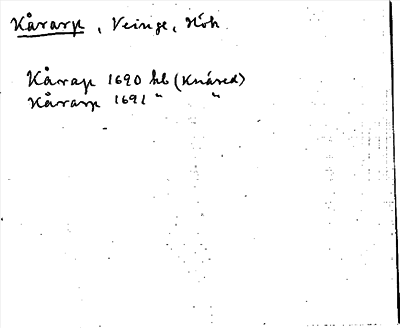 Kårarp, Veinge, Höh.
Kårrap 1690 hb (Knäred)
Kårarp 1691 " "